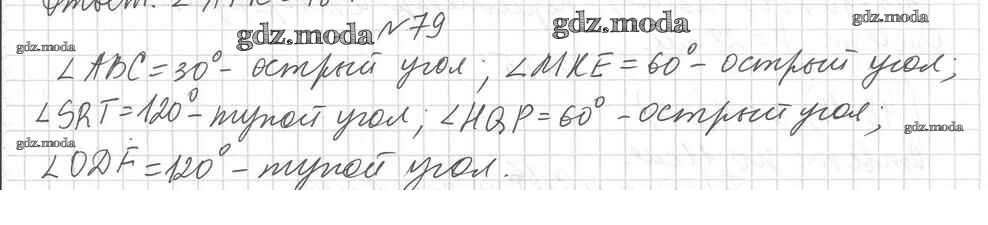 Ответ:
gdz.moda №79 gdz.moda gdz.moda
gdz.moda
∠ABC=30°- острый угол; ∠MKE=60°- острый угол;
∠SRT=120°- тупой угол; ∠HQP=60° - острый угол;
gdz.moda gdz.moda
∠ODF=120° - тупой угол.